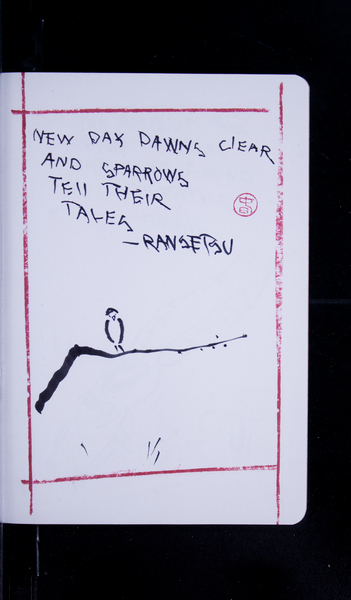 NEW DAY DAWNS CLEAR
AND SPARROWS
TELL THEIR
TALES
—RANSETSU